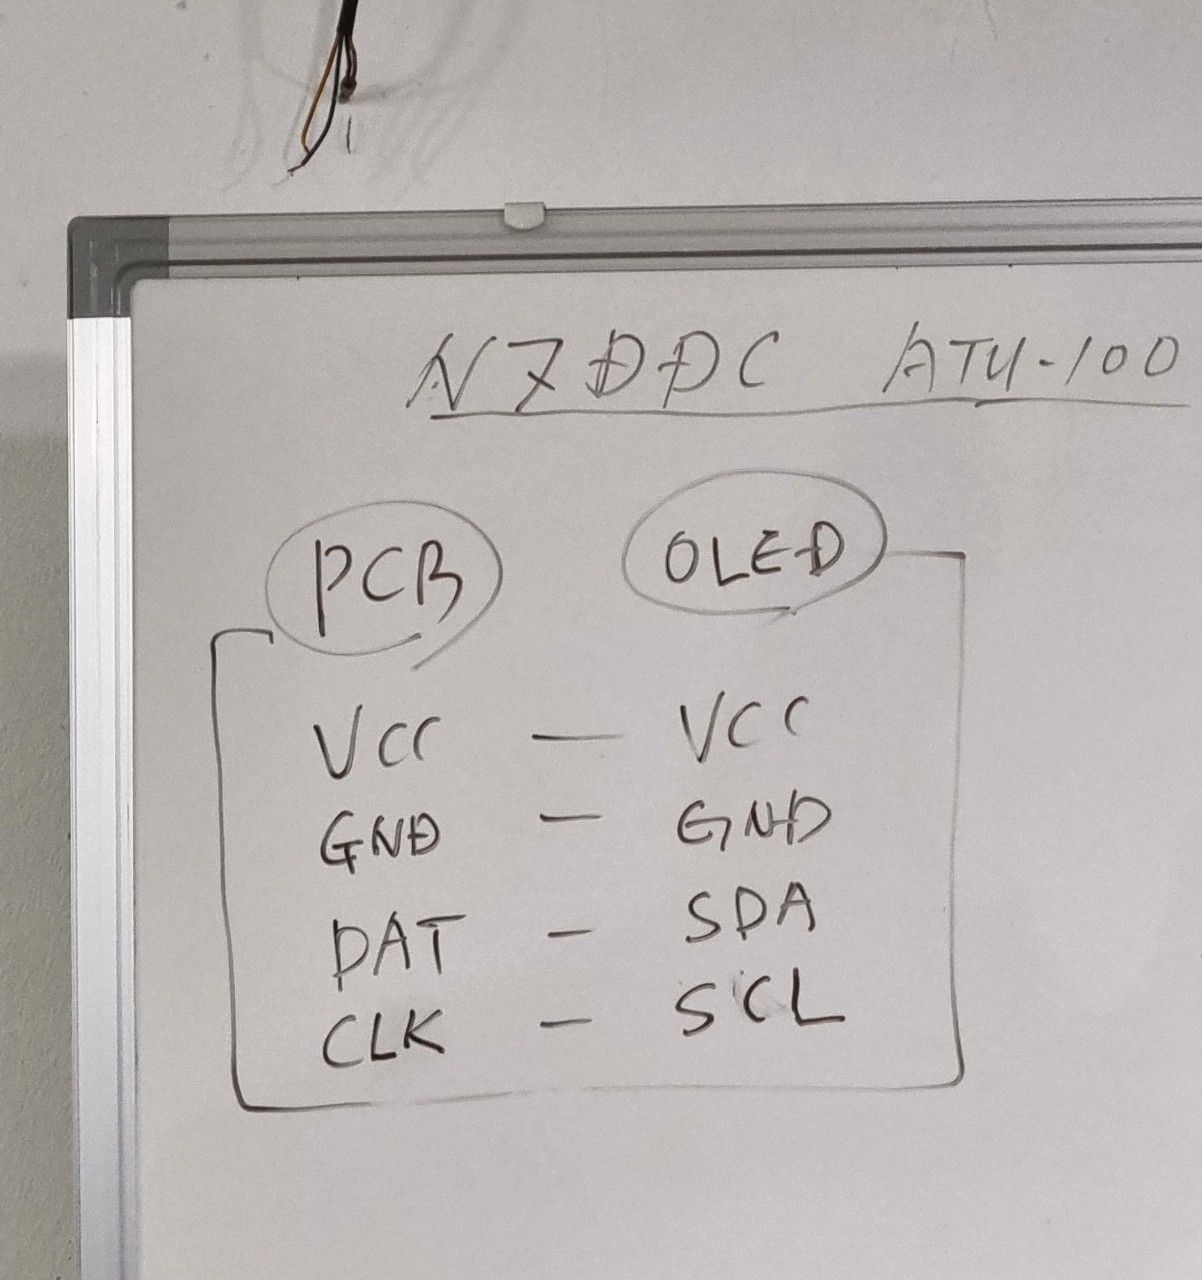 N7DDC ATU-100
PCB OLED
VCC — VCC
GND — GND
DAT — SDA
CLK — SCL